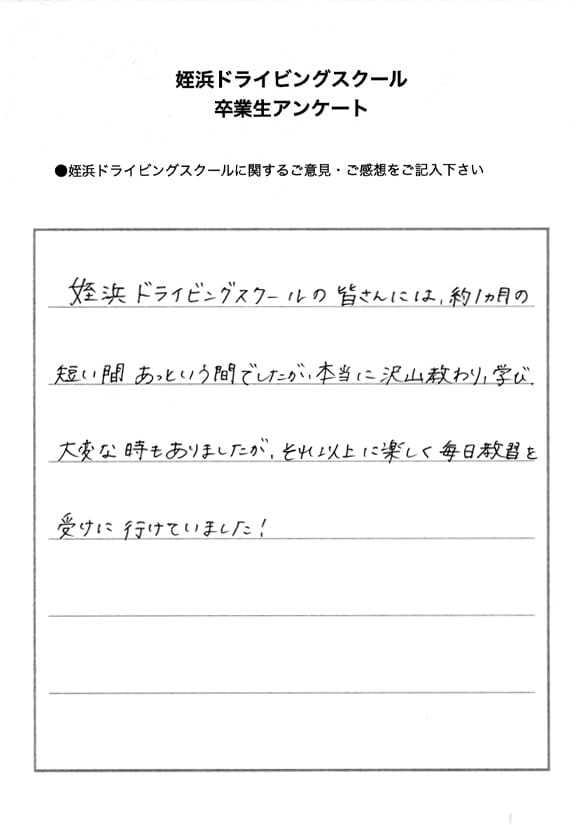 姪浜ドライビングスクール
卒業生アンケート
●姪浜ドライビングスクールに関するご意見・ご感想をご記入下さい
姪浜ドライビングスクールの皆さんには、約1ヵ月の
短い間あっという間でしたが、本当に沢山教わり、学び、
大変な時もありましたが、それ以上に楽しく毎日教習を
受けに行けていました!